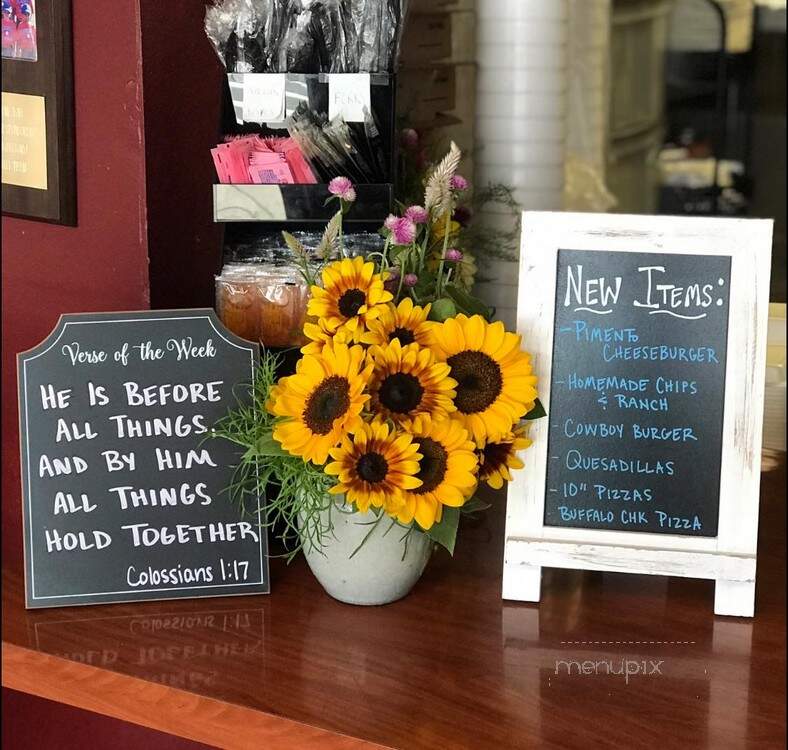 Verse of the Week
HE IS BEFORE
ALL THINGS.
AND BY HIM
ALL THINGS
HOLD TOGETHER
Colossians 1:17
NEW ITEMS:
- PIMENTO
CHEESEBURGER
- HOMEMADE CHIPS
& RANCH
- COWBOY BURGER
- QUESADILLAS
- 10" PIZZAS
BUFFALO CHK PIZZA
menupix